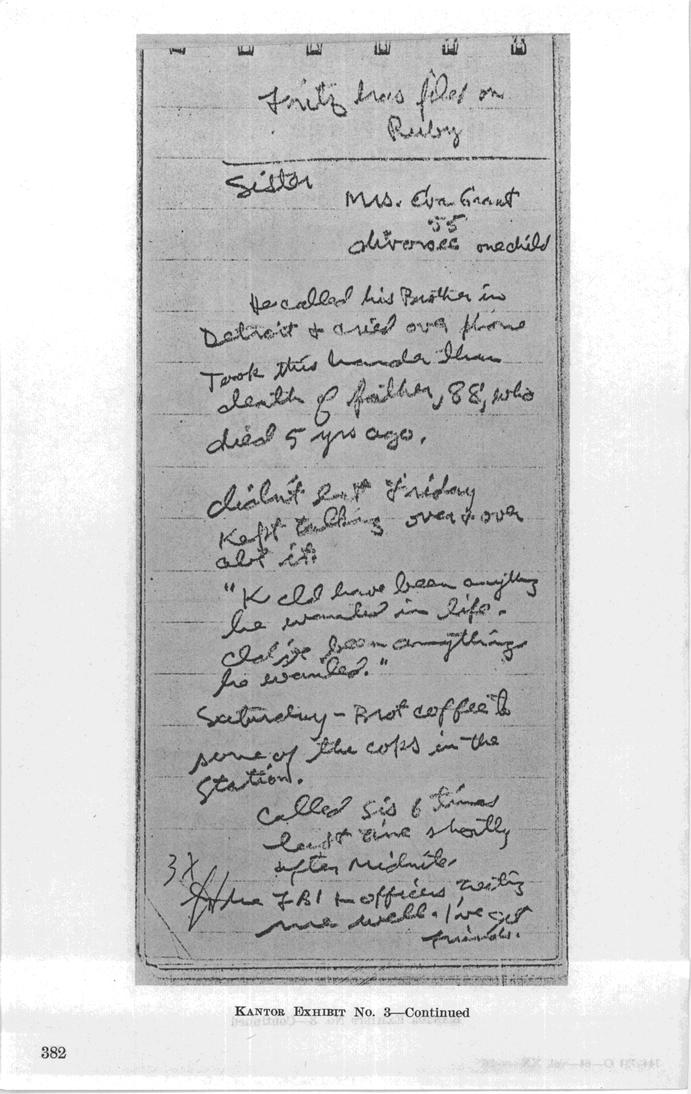 Fritz has filed on
Ruby
Sister
Mrs. Eva Grant
55
divorsee one child
He called his Brother in
Detroit & cried over phone
Took this harder than
death of father, 88, who
died 5 yrs ago.
didn't eat Friday
Kept talking over & over
abt it:
"K cld have been anything
he wanted in life.
Cld've been anything
he wanted."
Saturday - Brot coffee to
some of the cops in the
station.
called sis 6 times
last time shortly
after midnite.
3X
the FBI officers treating
me well. I've got
friends.
KANTOR EXHIBIT No. 3—Continued
382